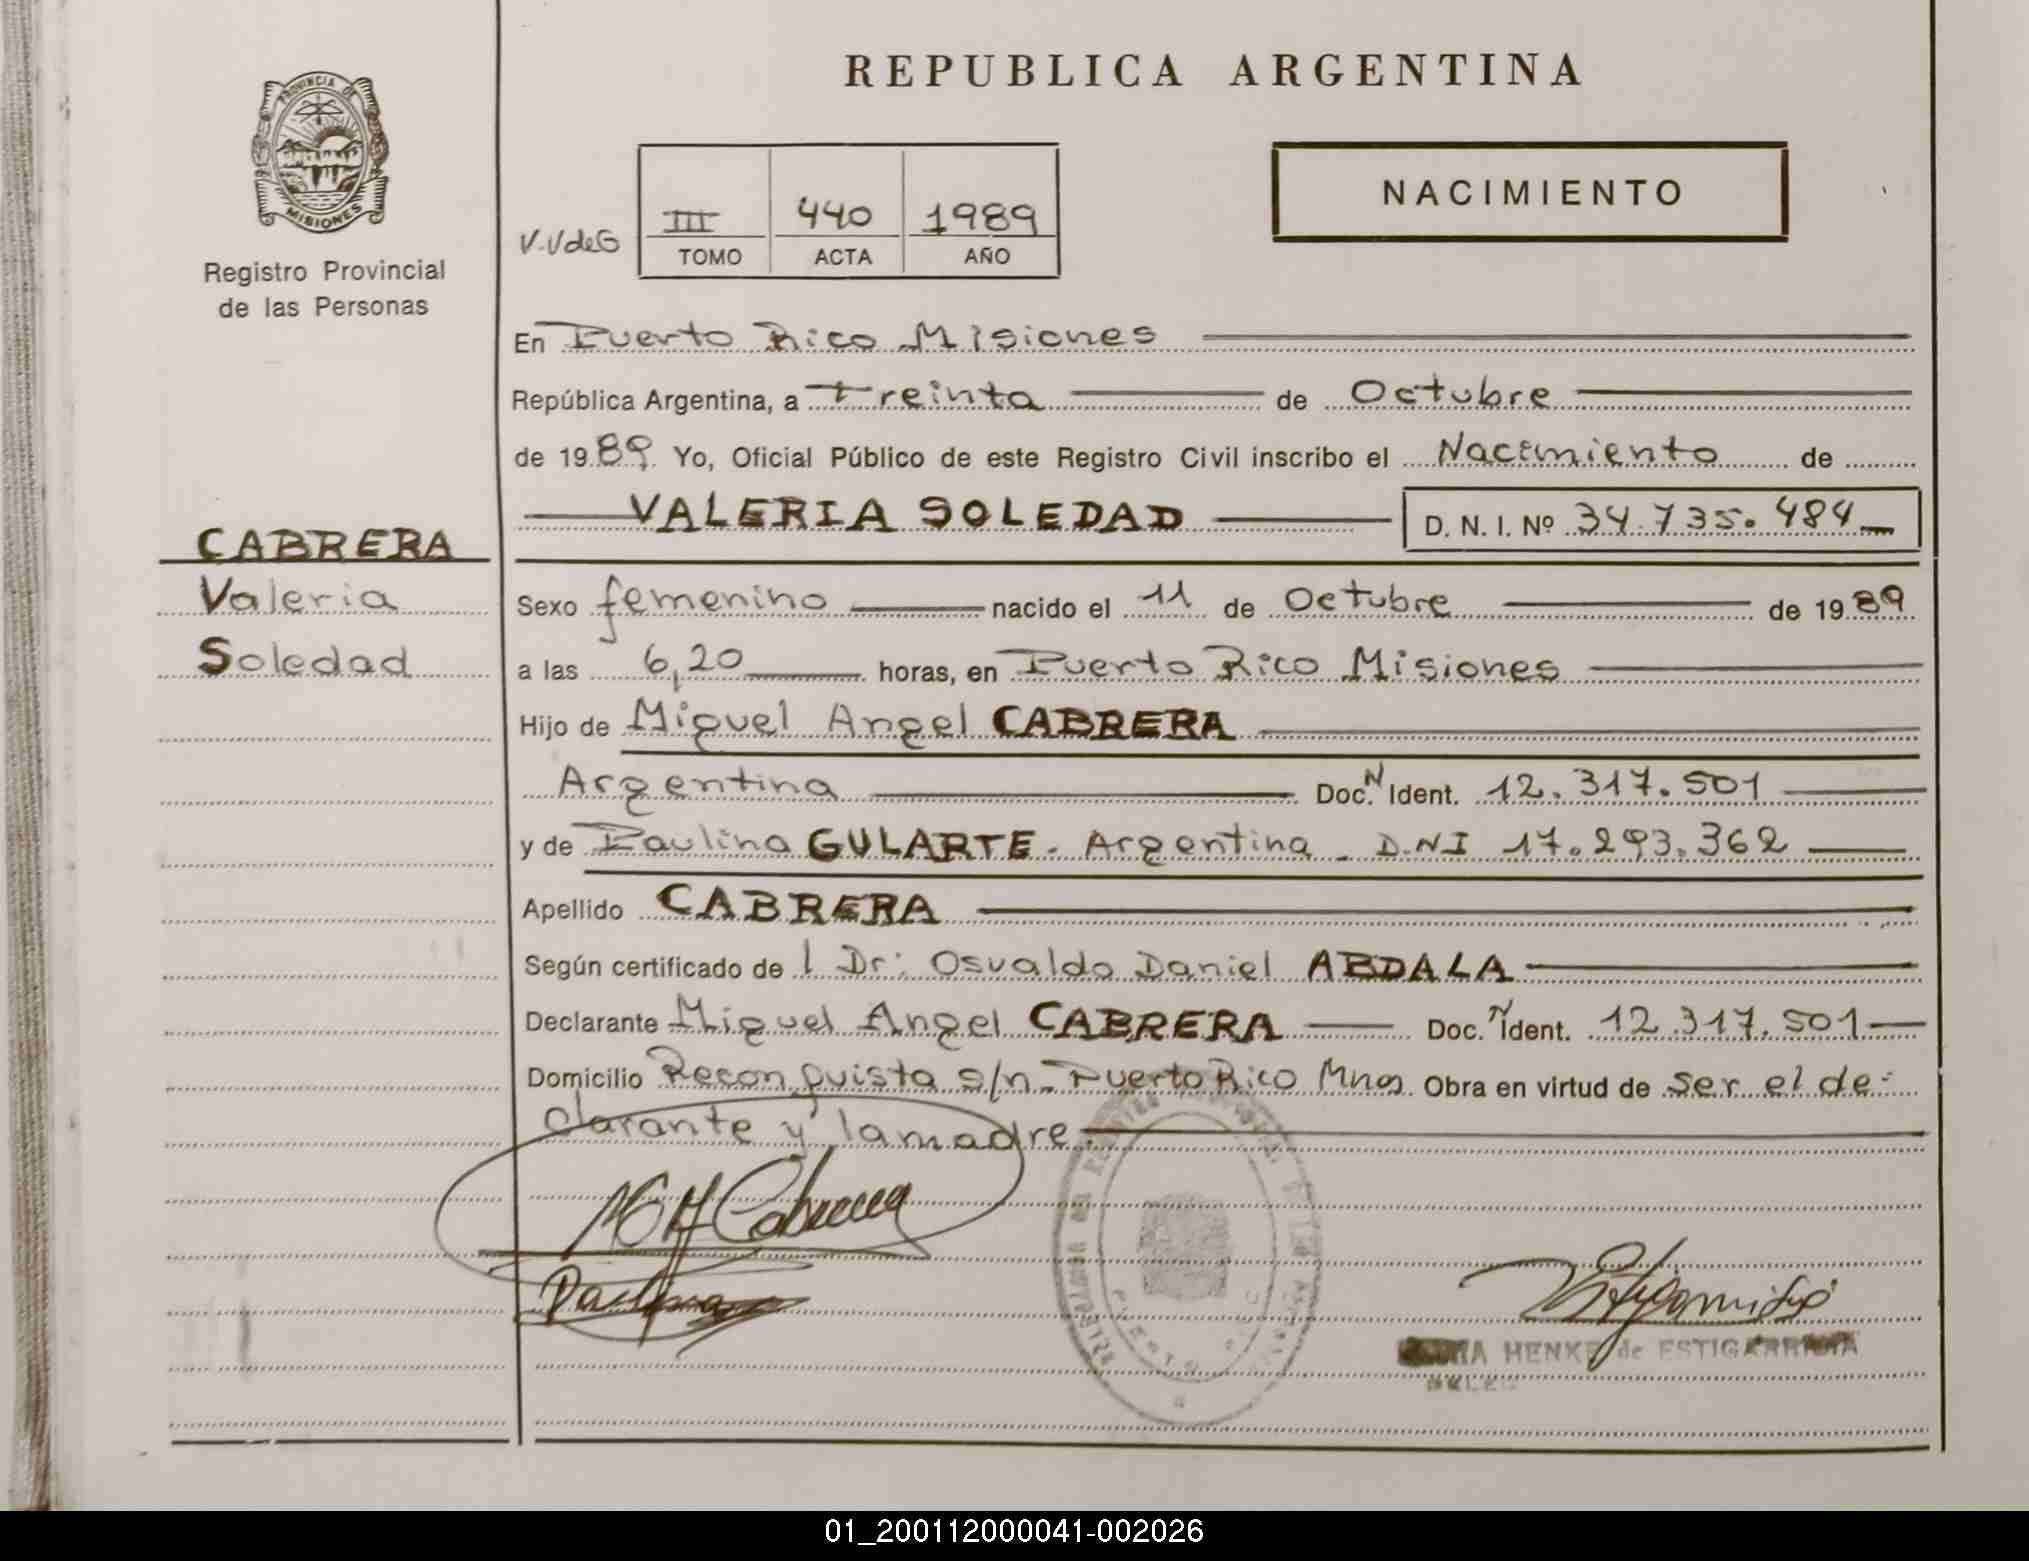 REPUBLICA ARGENTINA
PROVINCIA DE
MISIONES
Registro Provincial
de las Personas
NACIMIENTO
V.VdeG
III 440 1989
TOMO ACTA AÑO
En Puerto Rico Misiones
República Argentina, a treinta de Octubre
de 1989. Yo, Oficial Público de este Registro Civil inscribo el Nacimiento de
VALERIA SOLEDAD D. N. I. Nº 34.735.484
CABRERA
Valeria
Soledad
Sexo femenino nacido el 11 de Octubre de 1989
a las 6,20 horas, en Puerto Rico Misiones
Hijo de Miguel Angel CABRERA
Argentina Doc. N Ident. 12.317.501
y de Paulina GULARTE - Argentina - D.NI 17.293.362
Apellido CABRERA
Según certificado de l Dr: Osvaldo Daniel ABDALA
Declarante Miguel Angel CABRERA Doc. N Ident. 12.317.501
Domicilio Reconquista s/n - Puerto Rico Mnes. Obra en virtud de ser el de-
clarante y la madre.
M A Cabrera
HENKE de ESTIGARRIBIA
01_200112000041-002026